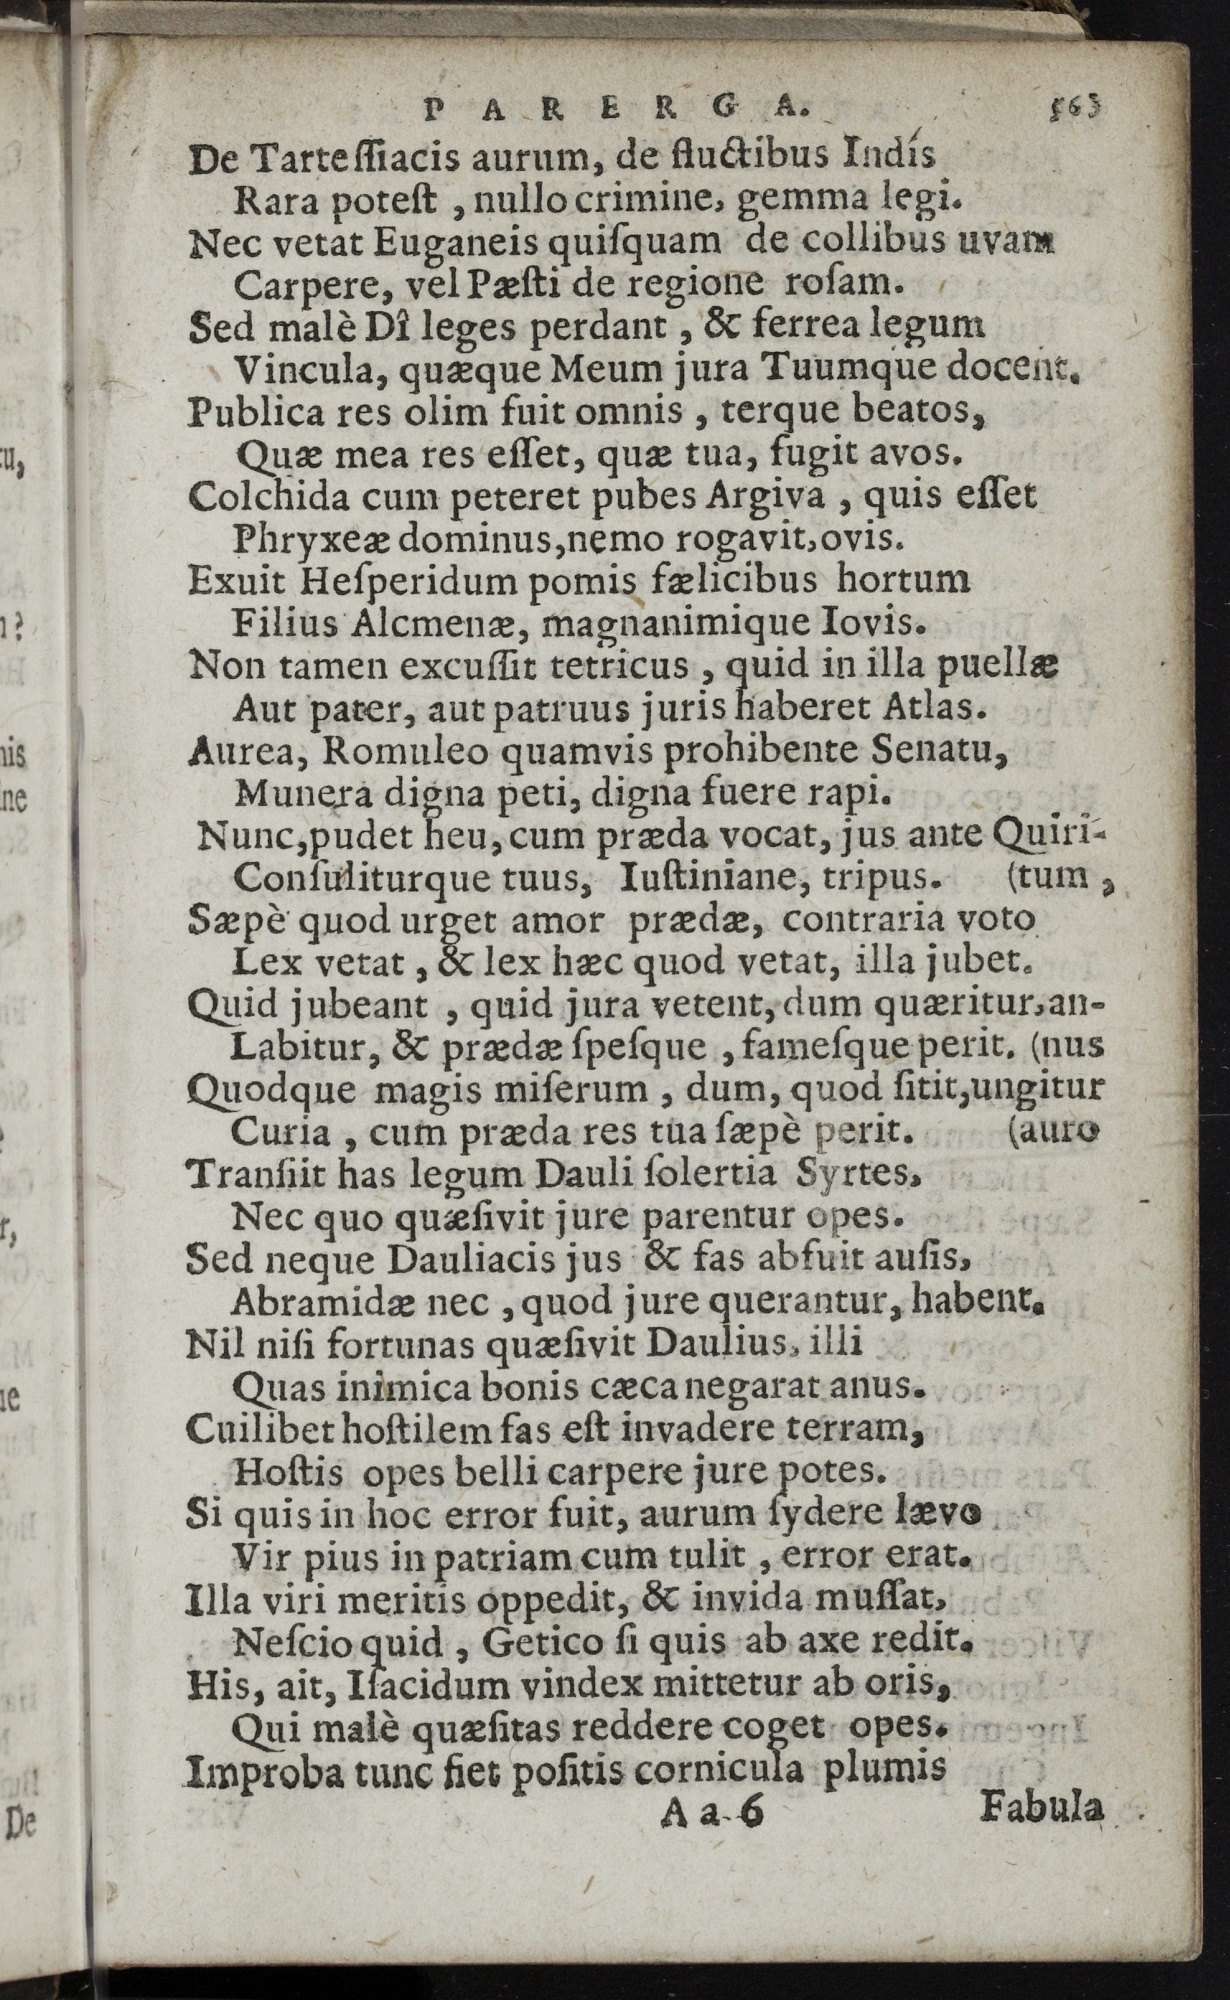 PARERGA. 563
De Tarteſſiacis aurum, de fluctibus Indis
Rara poteſt , nullo crimine, gemma legi.
Nec vetat Euganeis quiſquam de collibus uvam
Carpere, vel Pæſti de regione roſam.
Sed malè Dî leges perdant , & ferrea legum
Vincula, quæque Meum jura Tuumque docent.
Publica res olim fuit omnis , terque beatos,
Quæ mea res eſſet, quæ tua, fugit avos.
Colchida cum peteret pubes Argiva , quis eſſet
Phryxeæ dominus, nemo rogavit, ovis.
Exuit Heſperidum pomis fælicibus hortum
Filius Alcmenæ, magnanimique Iovis.
Non tamen excuſſit tetricus , quid in illa puellæ
Aut pater, aut patruus juris haberet Atlas.
Aurea, Romuleo quamvis prohibente Senatu,
Munera digna peti, digna fuere rapi.
Nunc, pudet heu, cum præda vocat, jus ante Quiri-
Conſuliturque tuus, Iuſtiniane, tripus. (tum ,
Sæpè quod urget amor prædæ, contraria voto
Lex vetat , & lex hæc quod vetat, illa jubet.
Quid jubeant , quid jura vetent, dum quæritur, an-
Labitur, & prædæ ſpeſque , fameſque perit. (nus
Quodque magis miſerum , dum, quod ſitit, ungitur
Curia , cum præda res tua ſæpè perit. (auro
Tranſiit has legum Dauli ſolertia Syrtes,
Nec quo quæſivit jure parentur opes.
Sed neque Dauliacis jus & fas abfuit auſis,
Abramidæ nec , quod jure querantur, habent.
Nil niſi fortunas quæſivit Daulius, illi
Quas inimica bonis cæca negarat anus.
Cuilibet hoſtilem fas eſt invadere terram,
Hoſtis opes belli carpere jure potes.
Si quis in hoc error fuit, aurum ſydere lævo
Vir pius in patriam cum tulit , error erat.
Illa viri meritis oppedit, & invida muſſat,
Neſcio quid , Getico ſi quis ab axe redit.
His, ait, Iſacidum vindex mittetur ab oris,
Qui malè quæſitas reddere coget opes.
Improba tunc fiet poſitis cornicula plumis
A a 6 Fabula
tu,
n?
nis
ne
r,
ue
De